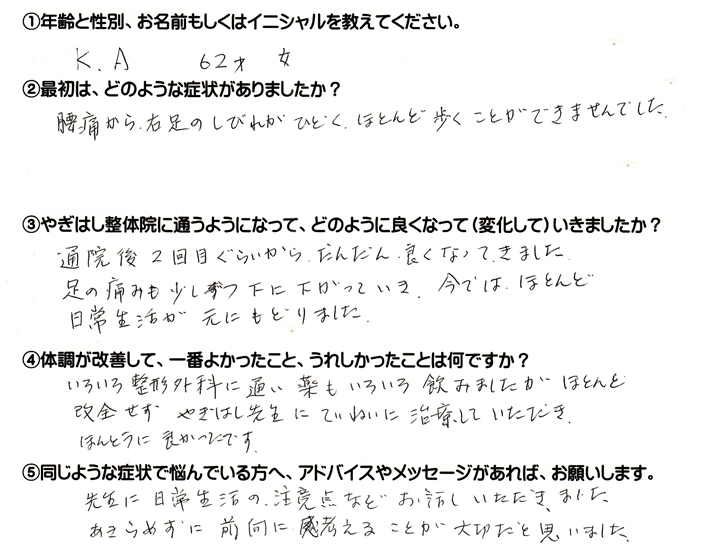 ①年齢と性別、お名前もしくはイニシャルを教えてください。
K.A 62才 女
②最初は、どのような症状がありましたか？
腰痛から、右足のしびれがひどく、ほとんど歩くことができませんでした。
③やぎはし整体院に通うようになって、どのように良くなって（変化して）いきましたか？
通院後2回目ぐらいから、だんだん良くなってきました。
足の痛みも少しずつ下に下がっていき、今では、ほとんど
日常生活が元にもどりました。
④体調が改善して、一番よかったこと、うれしかったことは何ですか？
いろいろ整形外科に通い薬もいろいろ飲みましたがほとんど
改全せず やぎはし先生にていねいに治療していただき、
ほんとうに良かったです。
⑤同じような症状で悩んでいる方へ、アドバイスやメッセージがあれば、お願いします。
先生に日常生活の、注意点などお話しいただき、ました
あきらめずに前向に考えることが大切だと思いました。